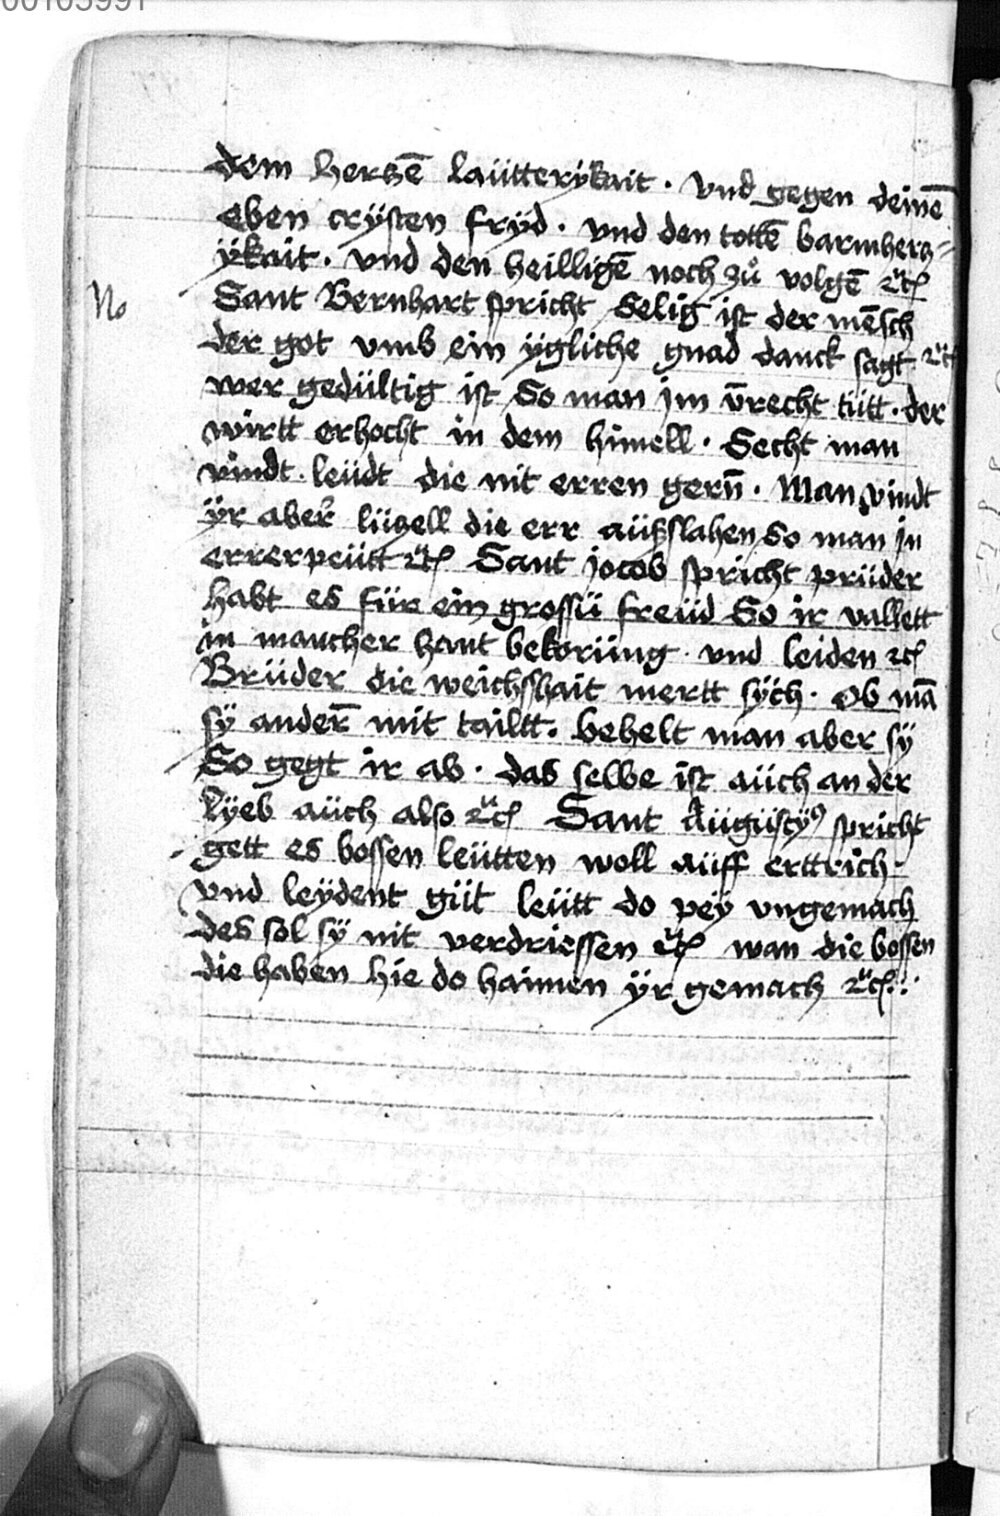 00105991
dem herczē laütterÿkait · vnd gegen deinē
eben crÿsten frÿd · vnd den tottē barmhercz=
ÿkait · vnd den heilligē noch zů volgē ꝛc̈
No
Sant Bernhart spricht Selig ist der mēsch
der got vmb ein ÿgliche gnad danck sagt ꝛc̈
wer gedültig ist So man jm v̄recht tütt · der
wirtt erhocht in dem himell · Secht man
vindt leüdt die nit erren gern̄ · Man vindt
ÿr aber lüczell die err aüßslahen So man in
errerpeütt ꝛc̈ Sant jocob spricht prüder
habt es für ein grossü freüd So ir vallett
in mancher hant bekorüng · vnd leiden ꝛc
Brüder die weichßhait mertt sÿch · ob mā
sÿ ander̄ mit tailtt · behelt man aber sÿ
So gegt ir ab · das selbe ist aüch an der
lÿeb aüch also ꝛc̈ Sant Aügüstÿ9 spricht
gett es bossen leütten woll aüff erttrich ·
vnd leÿdent güt leütt do peÿ vngemach
des sol sÿ nit verdriessen ꝛc̈ wan die bossen
die haben hie do haimen ÿr gemach ꝛc̈ :·